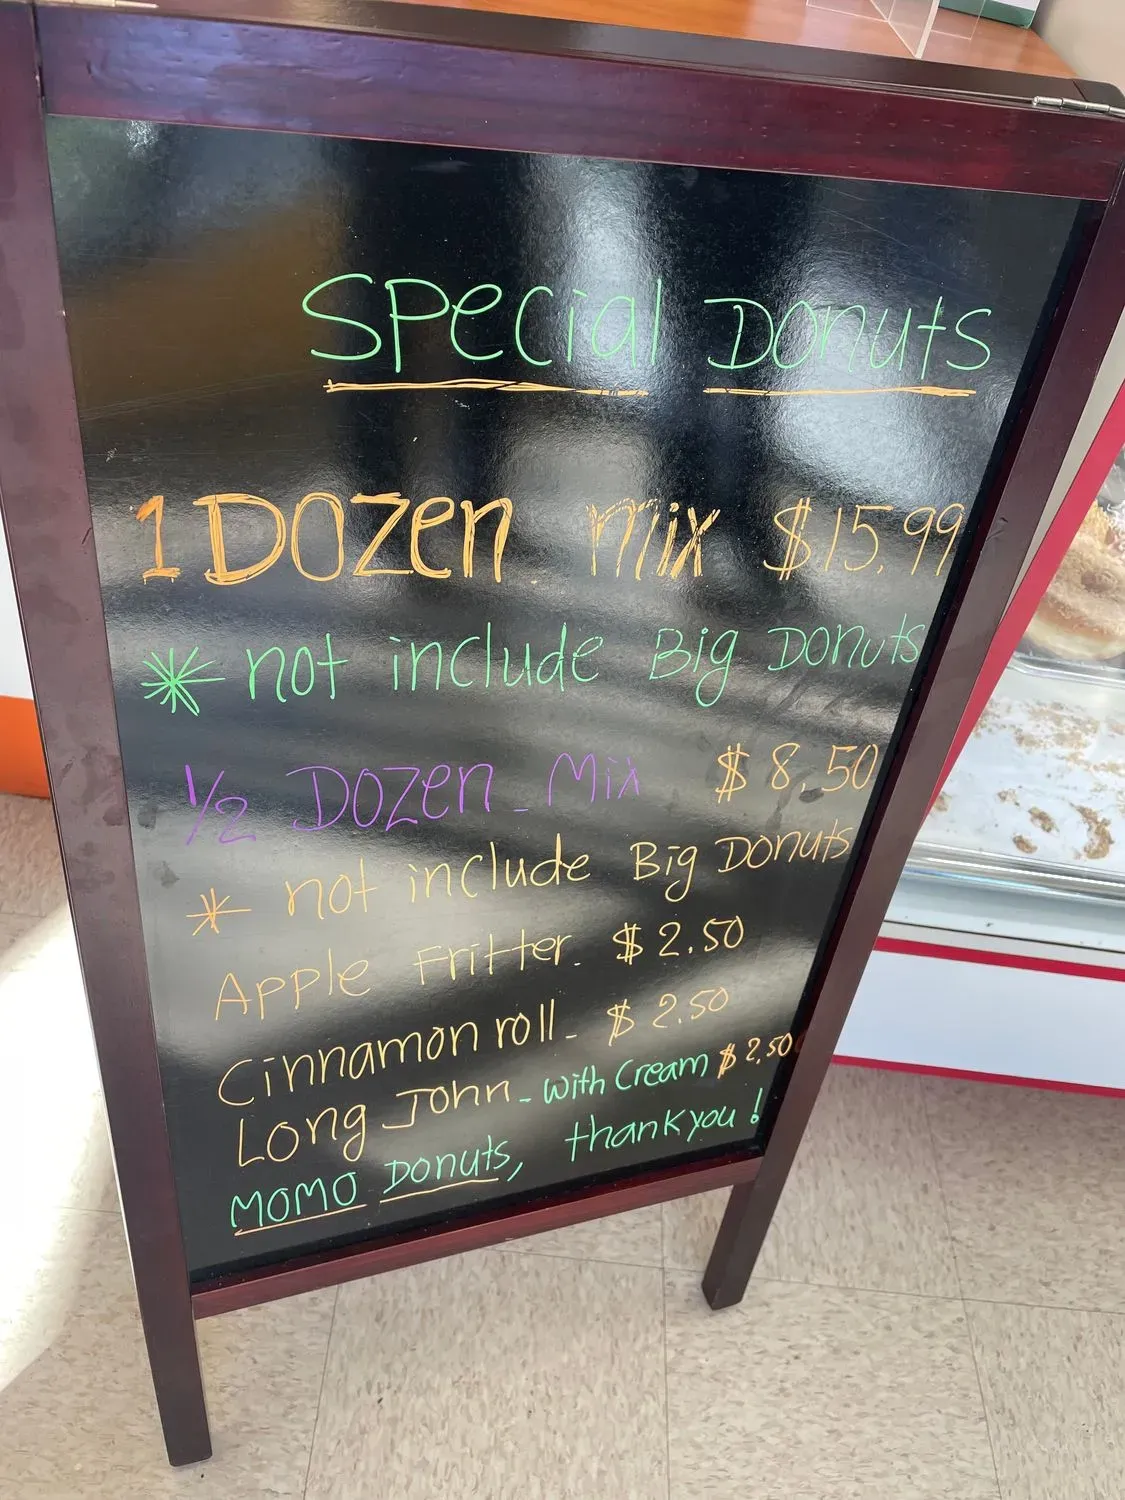 Special Donuts
1 Dozen mix $15.99
* not include Big Donuts
1/2 Dozen - Mix $8.50
* not include Big Donuts
Apple Fritter - $2.50
Cinnamon roll - $2.50
Long John - with Cream $2.50
MOMO Donuts, thank you!